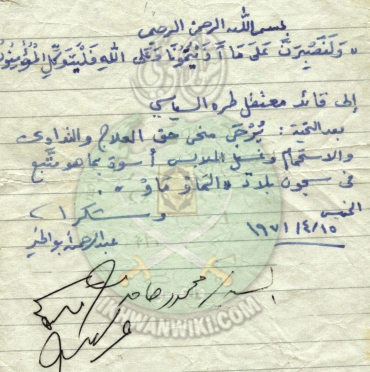 بسم الله الرحمن الرحيم
« وَلَنَصْبِرَنَّ عَلَى مَا آذَيْتُمُونَا وَعَلَى اللهِ فَلْيَتَوَكَّلِ الْمُؤْمِنُونَ
إلى قائد معتقل طره السياسي
بعد التحية : يُرْجَى منحى حق العلاج والتداوى
والاستحمام وغسل الملابس أسوة بما هو متَّبع
فى سجون بلاد « الماو ماو » .
وشكرا
الخميس
١٩٧١/٤/١٥
عبد الرحمن أبو الخير
محمود حامد
IKHWANWIKI.COM